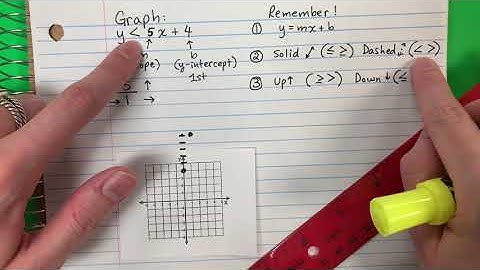 Graph:
y < 5x + 4
b
(y-intercept)
1st
5 ↑
→ 1 →
Remember!
① y=mx+b
② Solid ↗ (≤ ≥) Dashed ↗ (< >)
③ Up↑ (> ≥) Down ↓ (≤